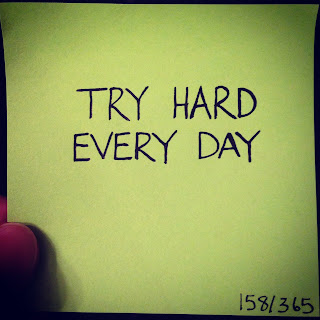 TRY HARD
EVERY DAY
158/365